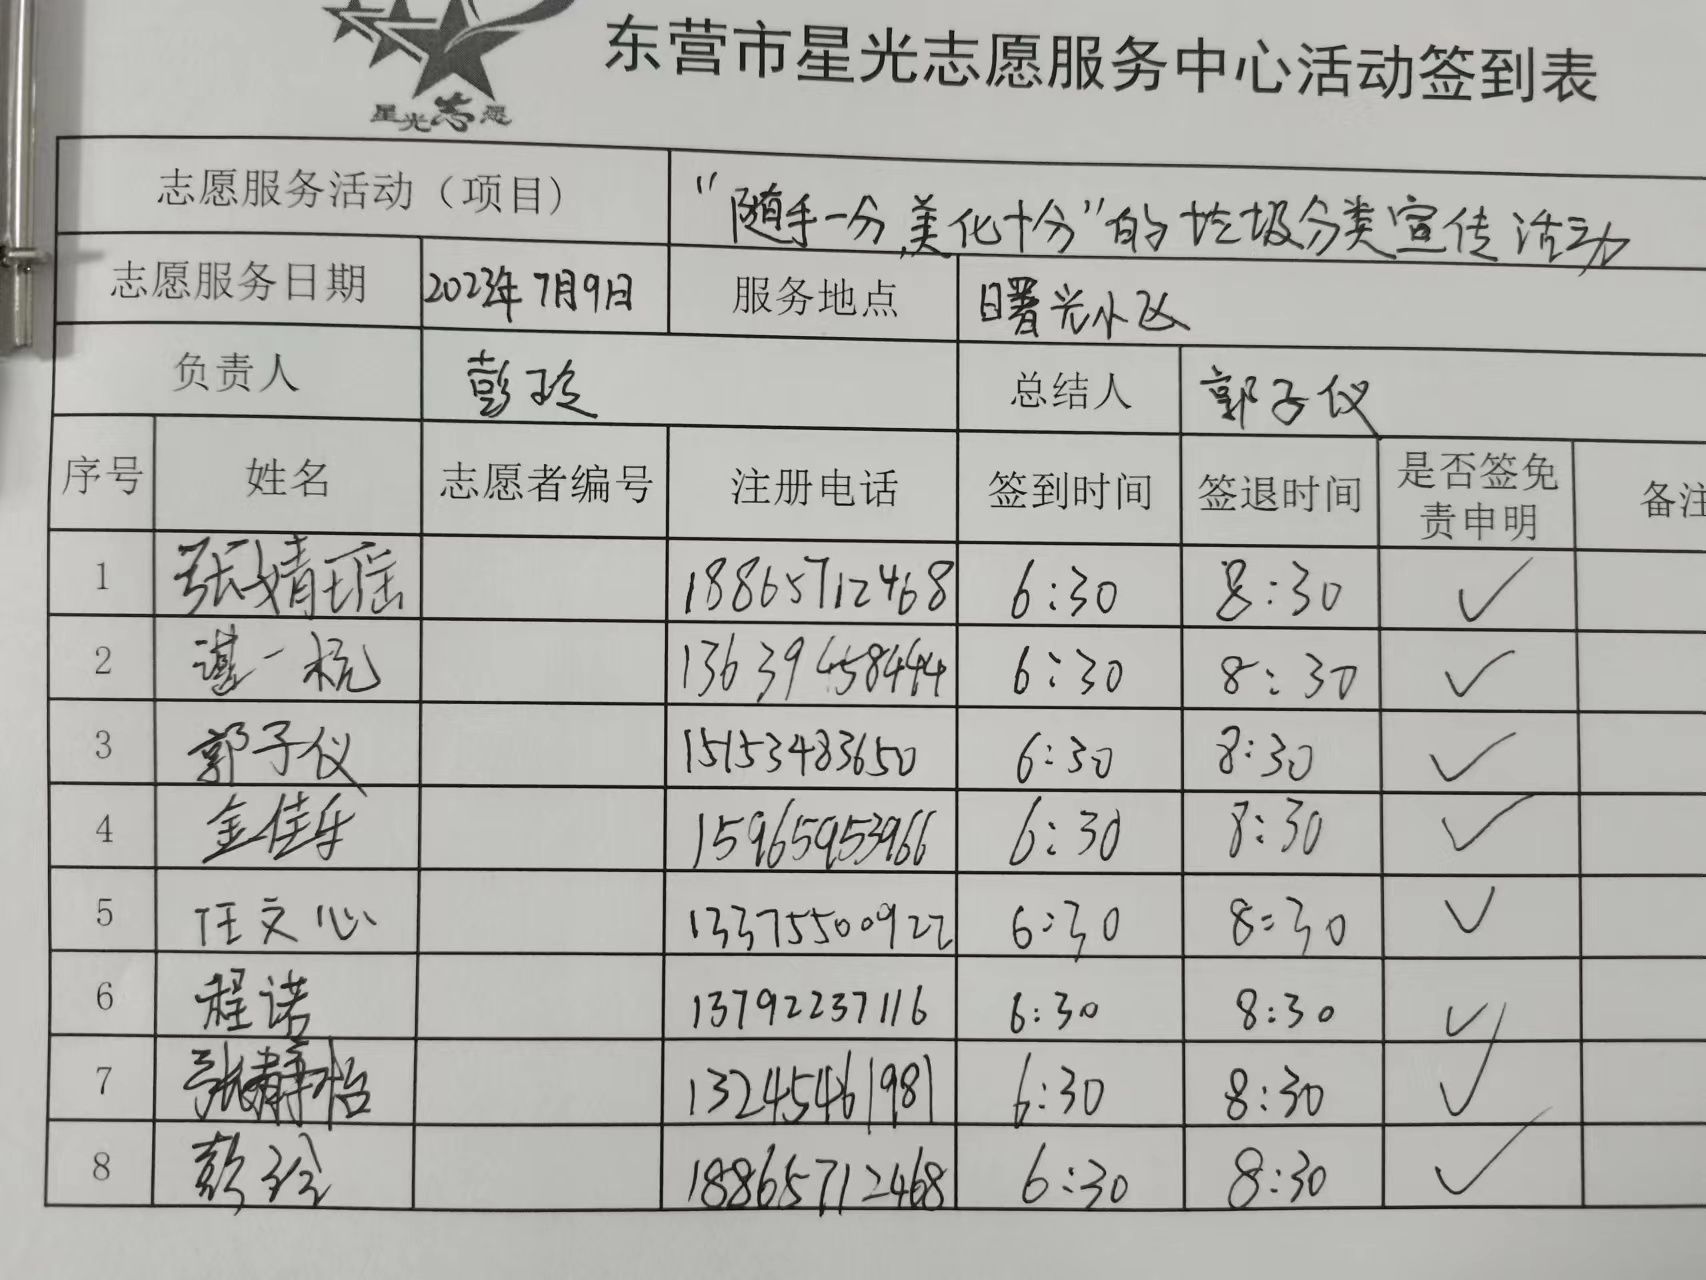 星光志愿
东营市星光志愿服务中心活动签到表
志愿服务活动（项目） “随手一分,美化十分”的垃圾分类宣传活动
志愿服务日期 2023年7月9日 服务地点 曙光小区
负责人 彭玲 总结人 郭子仪
序号 姓名 志愿者编号 注册电话 签到时间 签退时间 是否签免责申明 备注
1 张婧瑶 18865712468 6:30 8:30 ✓
2 谌一杭 13639458444 6:30 8:30 ✓
3 郭子仪 15153483650 6:30 8:30 ✓
4 金佳乐 15965953966 6:30 8:30 ✓
5 任文心 13375500922 6:30 8:30 ✓
6 程诺 13792237116 6:30 8:30 ✓
7 张静怡 13245461981 6:30 8:30 ✓
8 彭玲 18865712468 6:30 8:30 ✓